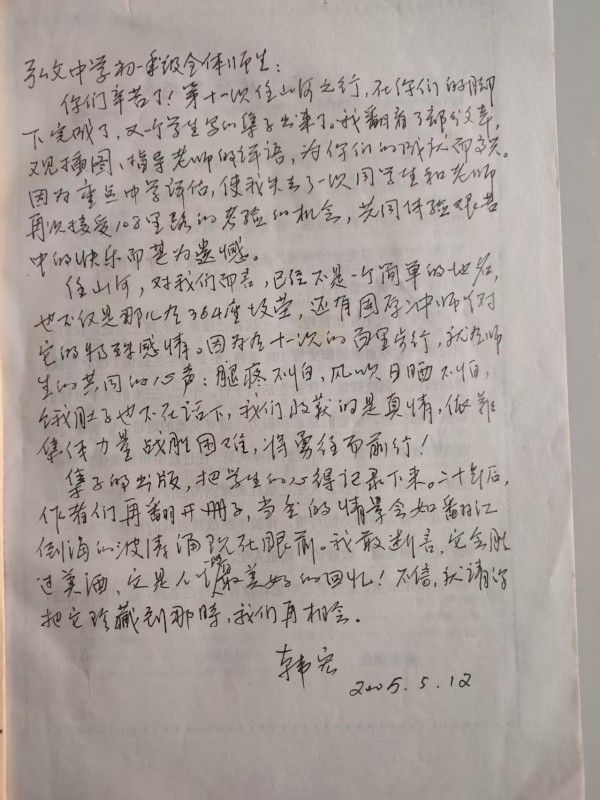 弘文中学初一年级全体师生:
你们辛苦了!第十一次佳山河之行,在你们的脚
下完成了,又一个学生写的集子出来了。我翻看了部分文章,
又见插图、指导老师的评语,为你们的成就而高兴。
因为重点中学评估,使我失去了一次同学生和老师
再次接受108里路的考验的机会,共同体验艰苦
中的快乐而甚为遗憾。
佳山河,对我们而言,已经不是一个简单的地名,
也不仅是那儿有364座坟茔,还有国存冲师生对
它的特殊感情。因为在十一次的百里步行,就有师
生的共同的心声:腿疼不怕,风吹日晒不怕,
饿肚子也不在话下,我们收获的是真情,依靠
集体力量战胜困难,将勇往而前行!
集子的出版,把学生的心得记录下来。二十年后,
作者们再翻开册子,当年的情景会如翻江
倒海的波涛涌现在眼前。我敢断言,它会胜
过美酒,它是人生最美好的回忆!不信,就请你
把它珍藏到那时,我们再相会。
韩宏
2005.5.12